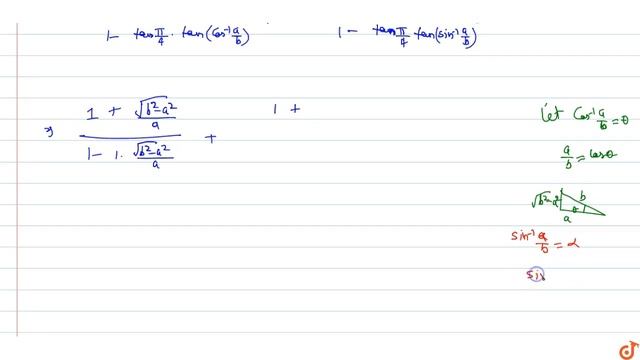 1- tan π/4 · tan(cos⁻¹ a/b)    1 - tan π/4 tan(sin⁻¹ a/b)
⇒ (1 + √(b²-a²)/a) / (1- 1. √(b²-a²)/a) + 1 +
let cos⁻¹ a/b = θ
a/b = cosθ
√b²-a² b
θ
a
sin⁻¹ a/b = α
sin
doubtnut